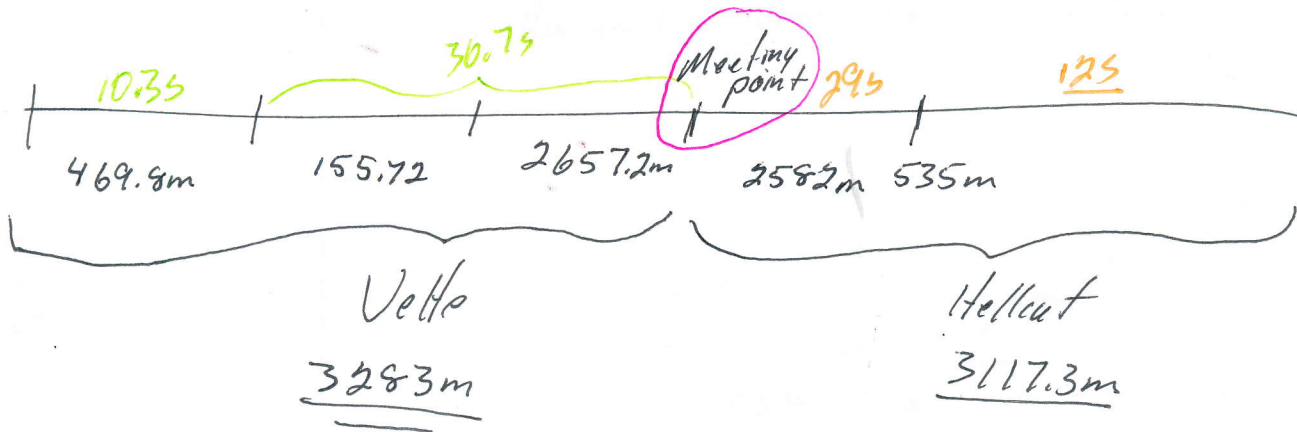 10.3s 30.7s Meeting point 29s 12s
469.8m 155.72 2657.2m 2582m 535m
Vette Hellcat
3283m 3117.3m